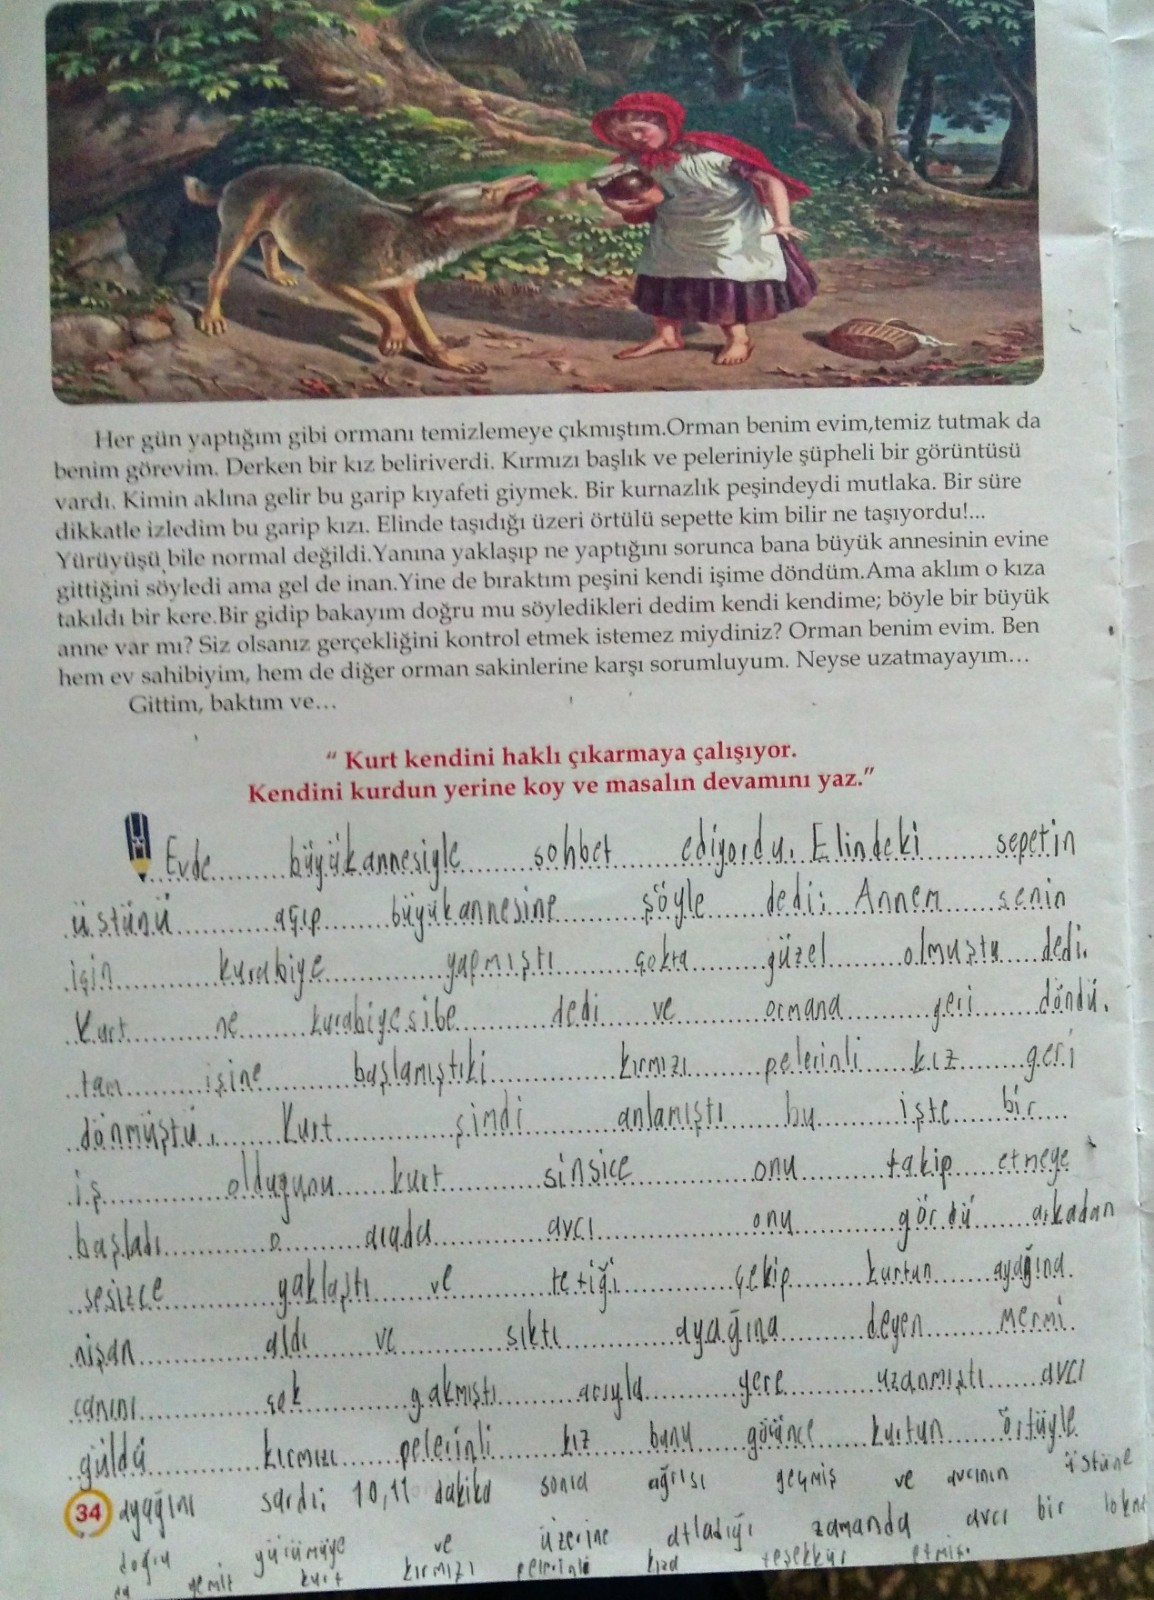 Her gün yaptığım gibi ormanı temizlemeye çıkmıştım.Orman benim evim,temiz tutmak da
benim görevim. Derken bir kız beliriverdi. Kırmızı başlık ve peleriniyle şüpheli bir görüntüsü
vardı. Kimin aklına gelir bu garip kıyafeti giymek. Bir kurnazlık peşindeydi mutlaka. Bir süre
dikkatle izledim bu garip kızı. Elinde taşıdığı üzeri örtülü sepette kim bilir ne taşıyordu!...
Yürüyüşü bile normal değildi.Yanına yaklaşıp ne yaptığını sorunca bana büyük annesinin evine
gittiğini söyledi ama gel de inan.Yine de bıraktım peşini kendi işime döndüm.Ama aklım o kıza
takıldı bir kere.Bir gidip bakayım doğru mu söyledikleri dedim kendi kendime; böyle bir büyük
anne var mı? Siz olsanız gerçekliğini kontrol etmek istemez miydiniz? Orman benim evim. Ben
hem ev sahibiyim, hem de diğer orman sakinlerine karşı sorumluyum. Neyse uzatmayayım...
Gittim, baktım ve...
" Kurt kendini haklı çıkarmaya çalışıyor.
Kendini kurdun yerine koy ve masalın devamını yaz."
Evde büyükannesiyle sohbet ediyordu. Elindeki sepetin
üstünü açıp büyükannesine şöyle dedi: Annem senin
için kurabiye yapmıştı çokta güzel olmuştu dedi.
Kurt ne kurabiyesibe dedi ve ormana geri döndü.
tam işine başlamıştıki kırmızı pelerinli kız geri
dönmüştü. Kurt şimdi anlamıştı bu işte bir
iş olduğunu kurt sinsice onu takip etmeye
başladı o arada avcı onu gördü arkadan
sesizce yaklaştı ve tetiği çekip kurtun ayağına
nişan aldı ve sıktı ayağına deyen mermi
canını çok yakmıştı acıyla yere uzanmıştı avcı
güldü kırmızı pelerinli kız bunu görünce kurtun örtüyle
34 ayağını sardı; 10,11 dakika sonra ağrısı geçmiş ve avcının üstüne
doğru yürümüye ve üzerine atladığı zamanda avcı bir lokma
da yemiş kurt kırmızı pelerinli kıza teşekkür etmiş.